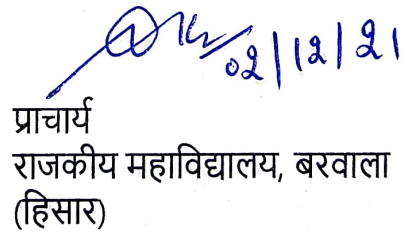 02/12/21
प्राचार्य
राजकीय महाविद्यालय, बरवाला
(हिसार)